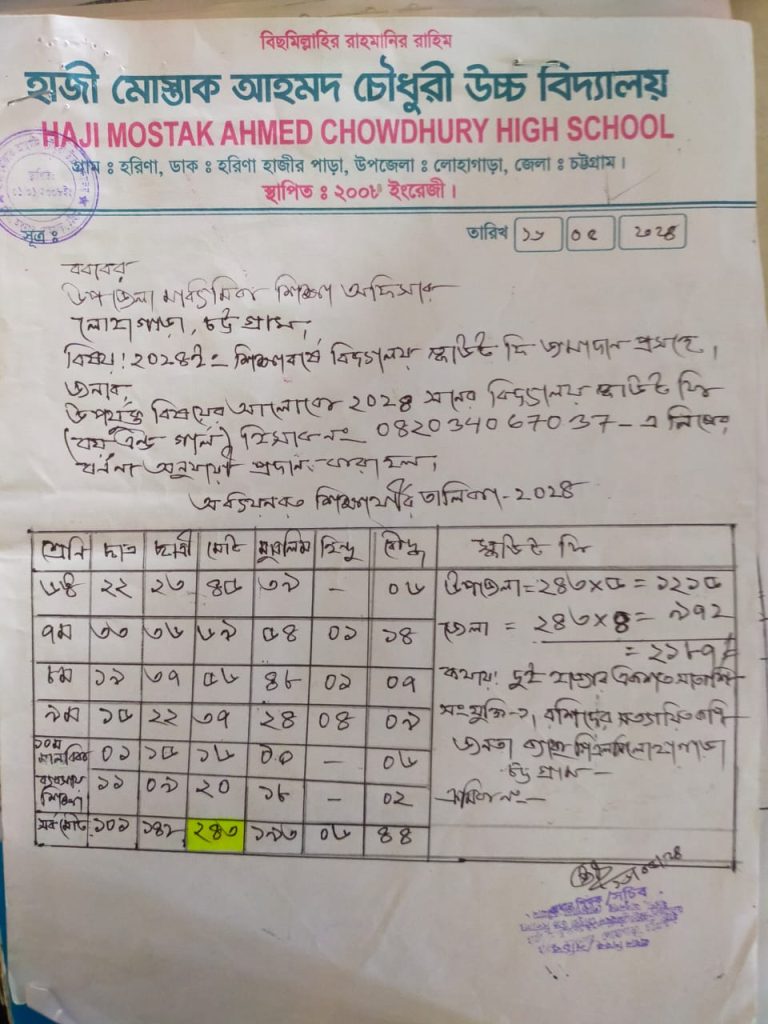 বিছমিল্লাহির রাহমানির রাহিম
হাজী মোস্তাক আহমদ চৌধুরী উচ্চ বিদ্যালয়
HAJI MOSTAK AHMED CHOWDHURY HIGH SCHOOL
গ্রাম : হরিণা, ডাক : হরিণা হাজীর পাড়া, উপজেলা : লোহাগাড়া, জেলা : চট্টগ্রাম।
স্থাপিত : ২০০৮ ইংরেজী।
সূত্র :
তারিখ ১৬ ০৫ ২০২৪
বরাবর
উপজেলা মাধ্যমিক শিক্ষা অফিসার
লোহাগাড়া, চট্টগ্রাম,
বিষয়: ২০২৪ইং শিক্ষাবর্ষে বিদ্যালয় স্কাউট ফি জমাদান প্রসঙ্গে।
জনাব,
উপর্যুক্ত বিষয়ের আলোকে ২০২৪ সনের বিদ্যালয় স্কাউট ফি
(বয় এন্ড গার্ল) হিসাব নং 082034067037-এ নিম্নের
বর্ননা অনুযায়ী প্রদান করা হল।
অধ্যয়নরত শিক্ষার্থীর তালিকা-২০২৪
শ্রেনি ছাত্র ছাত্রী মোট মুসলিম হিন্দু বৌদ্ধ স্কাউট ফি
৬ষ্ঠ ২২ ২৩ ৪৫ ৩৯ - ০৬ উপজেলা = ২৪৩×৫ = ১২১৫
৭ম ৩৩ ৩৬ ৬৯ ৫৪ ০১ ১৪ জেলা = ২৪৩×৪ = ৯৭২
= ২১৮৭/=
৮ম ১৯ ৩৭ ৫৬ ৪৮ ০১ ০৭ কথায়: দুই হাজার একশত সাতাশি
৯ম ১৫ ২২ ৩৭ ২৪ ০৪ ০৯ সংযুক্তি-১, রশিদের সত্যায়িত কপি
১০ম মানবিক ০১ ১৫ ১৬ ১০ - ০৬ জনতা ব্যাংক লোহাগাড়া
চট্টগ্রাম-
ব্যবসায় শিক্ষা ১১ ০৯ ২০ ১৮ - ০২ ক্রমিক নং-
সর্বমোট ১০১ ১৪২ ২৪৩ ১৯৩ ০৬ ৪৪